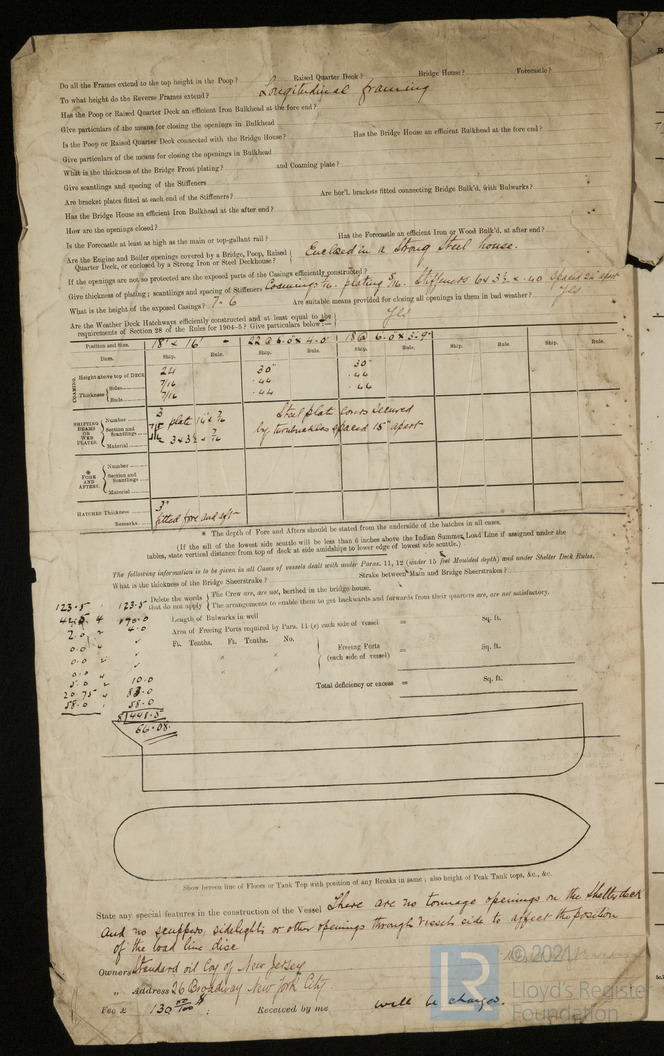 Do all the Frames extend to the top height in the Poop? Raised Quarter Deck? Bridge House? Forecastle?
To what height do the Reverse Frames extend? Longitudinal framing
Has the Poop or Raised Quarter Deck an efficient Iron Bulkhead at the fore end?
Give particulars of the means for closing the openings in Bulkhead
Is the Poop or Raised Quarter Deck connected with the Bridge House? Has the Bridge House an efficient Bulkhead at the fore end?
Give particulars of the means for closing the openings in Bulkhead
What is the thickness of the Bridge Front plating? and Coaming plate?
Give scantlings and spacing of the Stiffeners
Are bracket plates fitted at each end of the Stiffeners? Are hor'l. brackets fitted connecting Bridge Bulk'd, with Bulwarks?
Has the Bridge House an efficient Iron Bulkhead at the after end?
How are the openings closed?
Is the Forecastle at least as high as the main or top-gallant rail? Has the Forecastle an efficient Iron or Wood Bulk'd, at after end?
Are the Engine and Boiler openings covered by a Bridge, Poop, Raised Quarter Deck, or enclosed by a Strong Iron or Steel Deckhouse? Enclosed in a Strong Steel house.
If the openings are not so protected are the exposed parts of the Casings efficiently constructed?
Give thickness of plating; scantlings and spacing of Stiffeners Coamings 7/16. plating 5/16. Stiffeners 6 x 3½ x .40 Spaced 24" apart
What is the height of the exposed Casings? 7-6 Are suitable means provided for closing all openings in them in bad weather? Yes
Are the Weather Deck Hatchways efficiently constructed and at least equal to the
requirements of Section 28 of the Rules for 1904-5? Give particulars below:— Yes
Position and Size. 18' x 16' - 22 @ 6-0 x 4-0 18 @ 6-0 x 3-9
Item. Ship. Rule. Ship. Rule. Ship. Rule. Ship. Rule. Ship. Rule.
COAMING. Height above top of DECK 24 30" 30"
Thickness Sides 7/16 .44 .44
Ends 7/16 .44 .44
SHIFTING BEAMS OR WEB PLATES. Number 3 Steel plate covers secured
Section and Scantlings plate 14" x 7/16 by turnbuckles spaced 15" apart
3 x 3½ x 7/16
Material
FORE AND AFTERS. Number
Section and Scantlings
Material
HATCHES Thickness 3"
Remarks fitted fore and aft
* The depth of Fore and Afters should be stated from the underside of the hatches in all cases.
(If the sill of the lowest side scuttle will be less than 6 inches above the Indian Summer Load Line if assigned under the
tables, state vertical distance from top of deck at side amidships to lower edge of lowest side scuttle.)
The following information is to be given in all Cases of vessels dealt with under Paras. 11, 12 (under 15 feet Moulded depth) and under Shelter Deck Rules.
What is the thickness of the Bridge Sheerstrake? Strake between Main and Bridge Sheerstrakes?
Delete the words that do not apply The Crew are, are not, berthed in the bridge house.
The arrangements to enable them to get backwards and forwards from their quarters are, are not satisfactory.
Length of Bulwarks in well
Area of Freeing Ports required by Para. 11 (e) each side of vessel = Sq. ft.
Ft. Tenths. Ft. Tenths. No.
Freeing Ports (each side of vessel) = Sq. ft.
Total deficiency or excess = Sq. ft.
123.5 123.5
4.0
0.0
0.0
5.0 10.0
20.75
58.0 58.0
66.08
Show hereon line of Floors or Tank Top with position of any Breaks in same; also height of Peak Tank tops, &c., &c.
State any special features in the construction of the Vessel There are no tonnage openings on the Shelter deck
and no scuppers, sidelights or other openings through vessels side to affect the position
of the load line disc
Owners Standard oil Coy of New Jersey
„ Address 26 Broadway New York City.
Fee £ 130 00/100 $ : Received by me will be charged.
© 2021
LR Lloyd's Register
Foundation